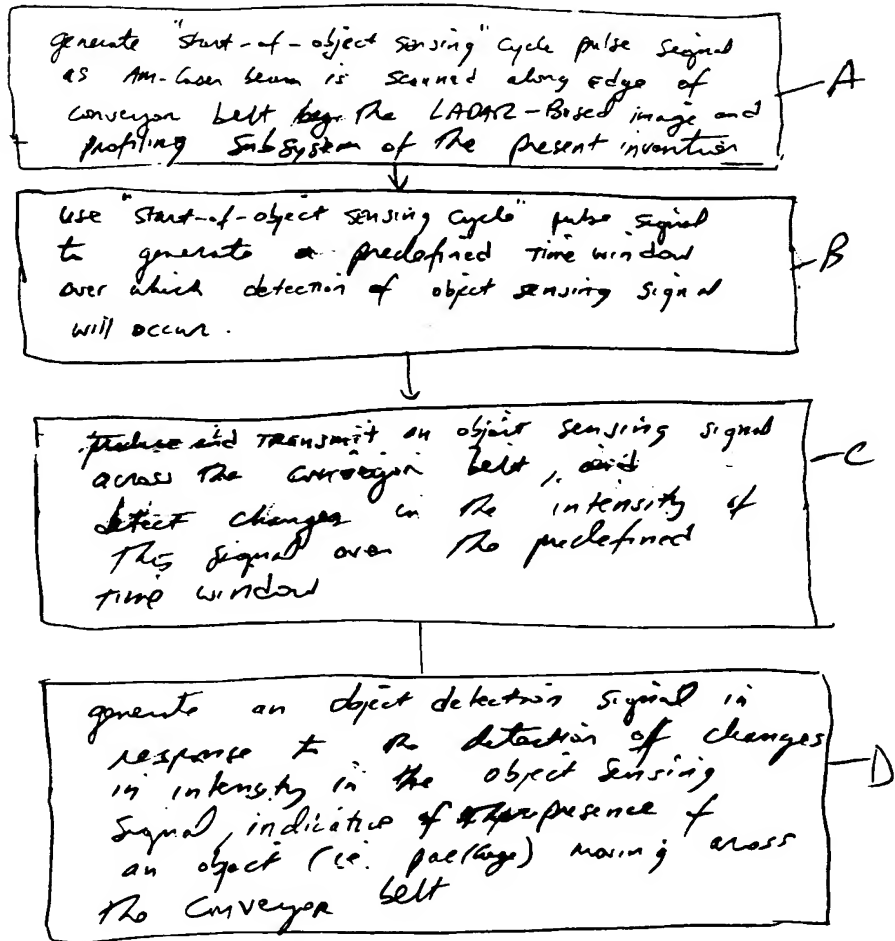 generate "start-of-object sensing" cycle pulse signal
as AM-laser beam is scanned along edge of
conveyor belt by the LADAR-Based image and
profiling subsystem of the present invention
A
use "start-of-object sensing cycle" pulse signal
to generate a predefined time window
over which detection of object sensing signal
will occur.
B
produce and TRANSMIT an object sensing signal
across the conveyor belt, and
detect changes in the intensity of
this signal over the predefined
time window
C
generate an object detection signal in
response to the detection of changes
in intensity in the object sensing
signal, indicative of the presence of
an object (ie. package) moving across
the conveyor belt
D